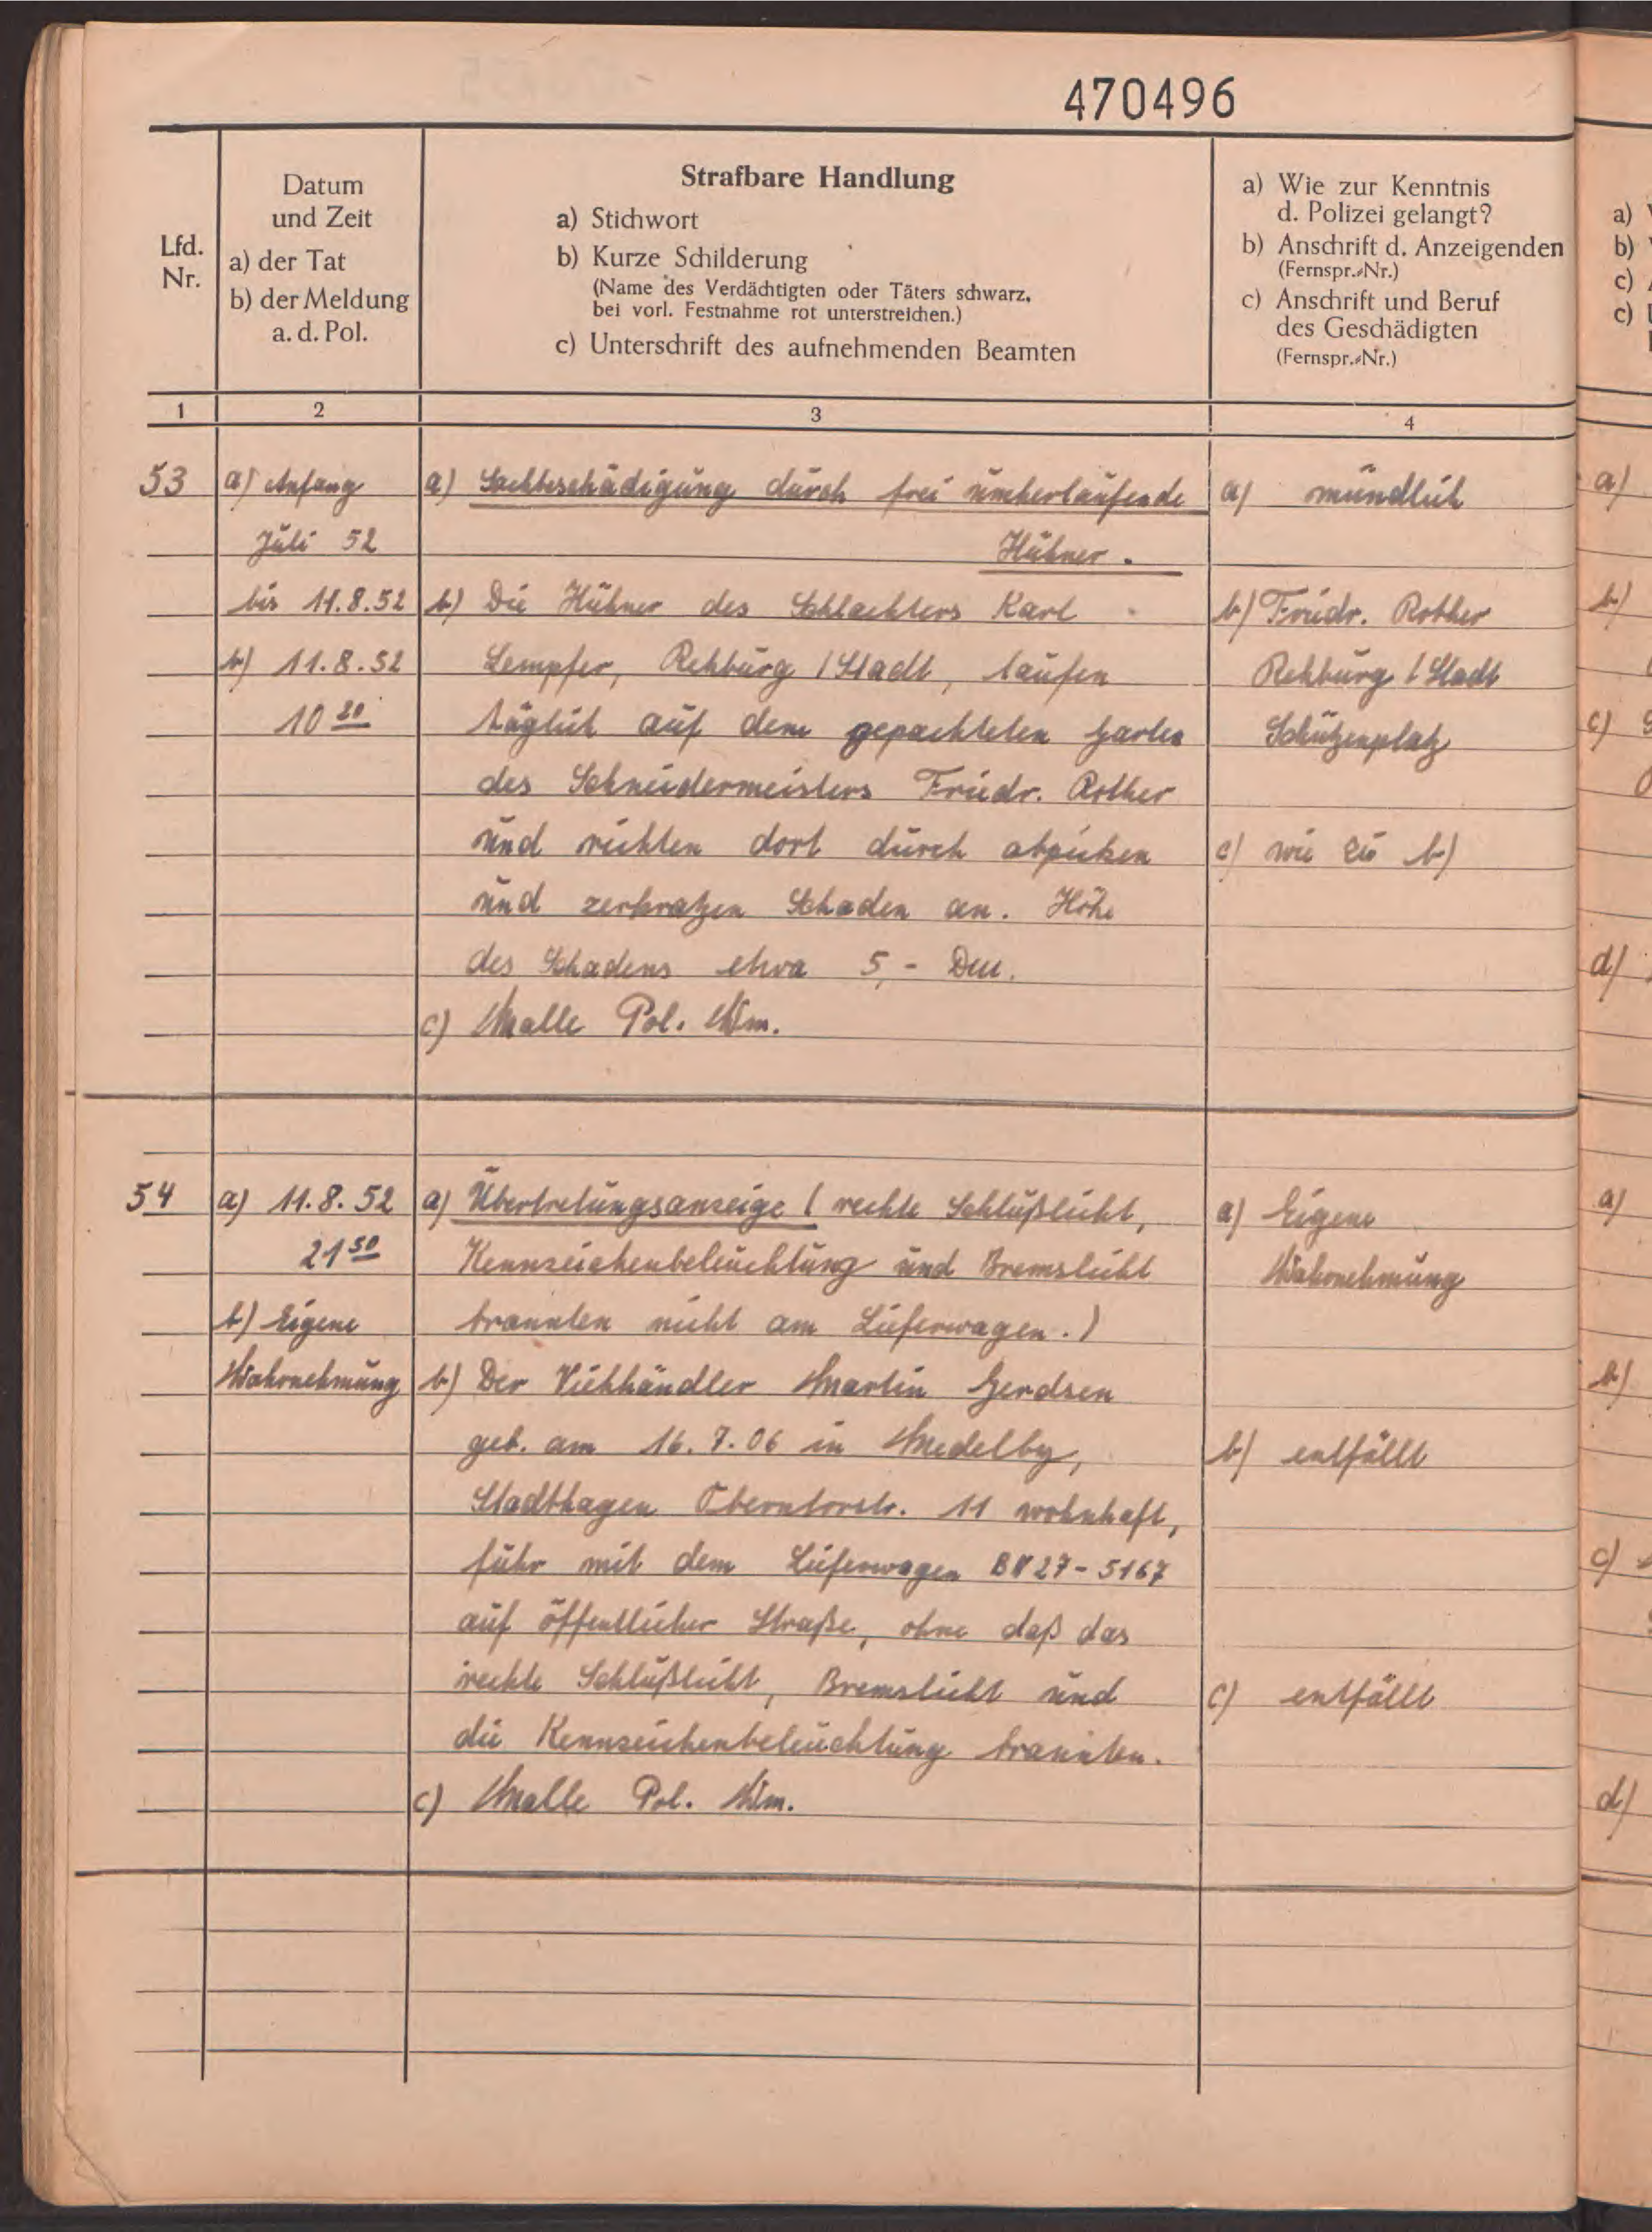 470496
Lfd.
Nr.
Datum
und Zeit
a) der Tat
b) der Meldung
a. d. Pol.
Strafbare Handlung
a) Stichwort
b) Kurze Schilderung
(Name des Verdächtigten oder Täters schwarz,
bei vorl. Festnahme rot unterstreichen.)
c) Unterschrift des aufnehmenden Beamten
a) Wie zur Kenntnis
d. Polizei gelangt?
b) Anschrift d. Anzeigenden
(Fernspr.-Nr.)
c) Anschrift und Beruf
des Geschädigten
(Fernspr.-Nr.)
1
2
3
4
53
a) Anfang
Juli 52
bis 11.8.52
b) 11.8.52
10 20
a) Sachbeschädigung durch frei umherlaufende
Hühner.
b) Die Hühner des Schlachters Karl
Lempfer, Rehburg / Stadt, laufen
täglich auf dem gepachteten Garten
des Schneidermeisters Friedr. Rother
und richten dort durch abpicken
und zerkratzen Schaden an. Höhe
des Schadens etwa 5,- DM.
c) Malle Pol. Wm.
a) mündlich
b) Friedr. Rother
Rehburg / Stadt
Schützenplatz
c) wie zu b)
54
a) 11.8.52
21 50
b) Eigene
Wahrnehmung
a) Übertretungsanzeige ( rechte Schlußlicht,
Kennzeichenbeleuchtung und Bremslicht
brannten nicht am Lieferwagen.)
b) Der Viehhändler Martin Gerdsen
geb. am 16.7.06 in Medelby,
Stadthagen Oberntorstr. 11 wohnhaft,
fuhr mit dem Lieferwagen BN 27-5167
auf öffentlicher Straße, ohne daß das
rechte Schlußlicht, Bremslicht und
die Kennzeichenbeleuchtung brannten.
c) Malle Pol. Wm.
a) Eigene
Wahrnehmung
b) entfällt
c) entfällt
a)
b)
c)
c)
a)
b)
c)
d)
a)
b)
c)
d)